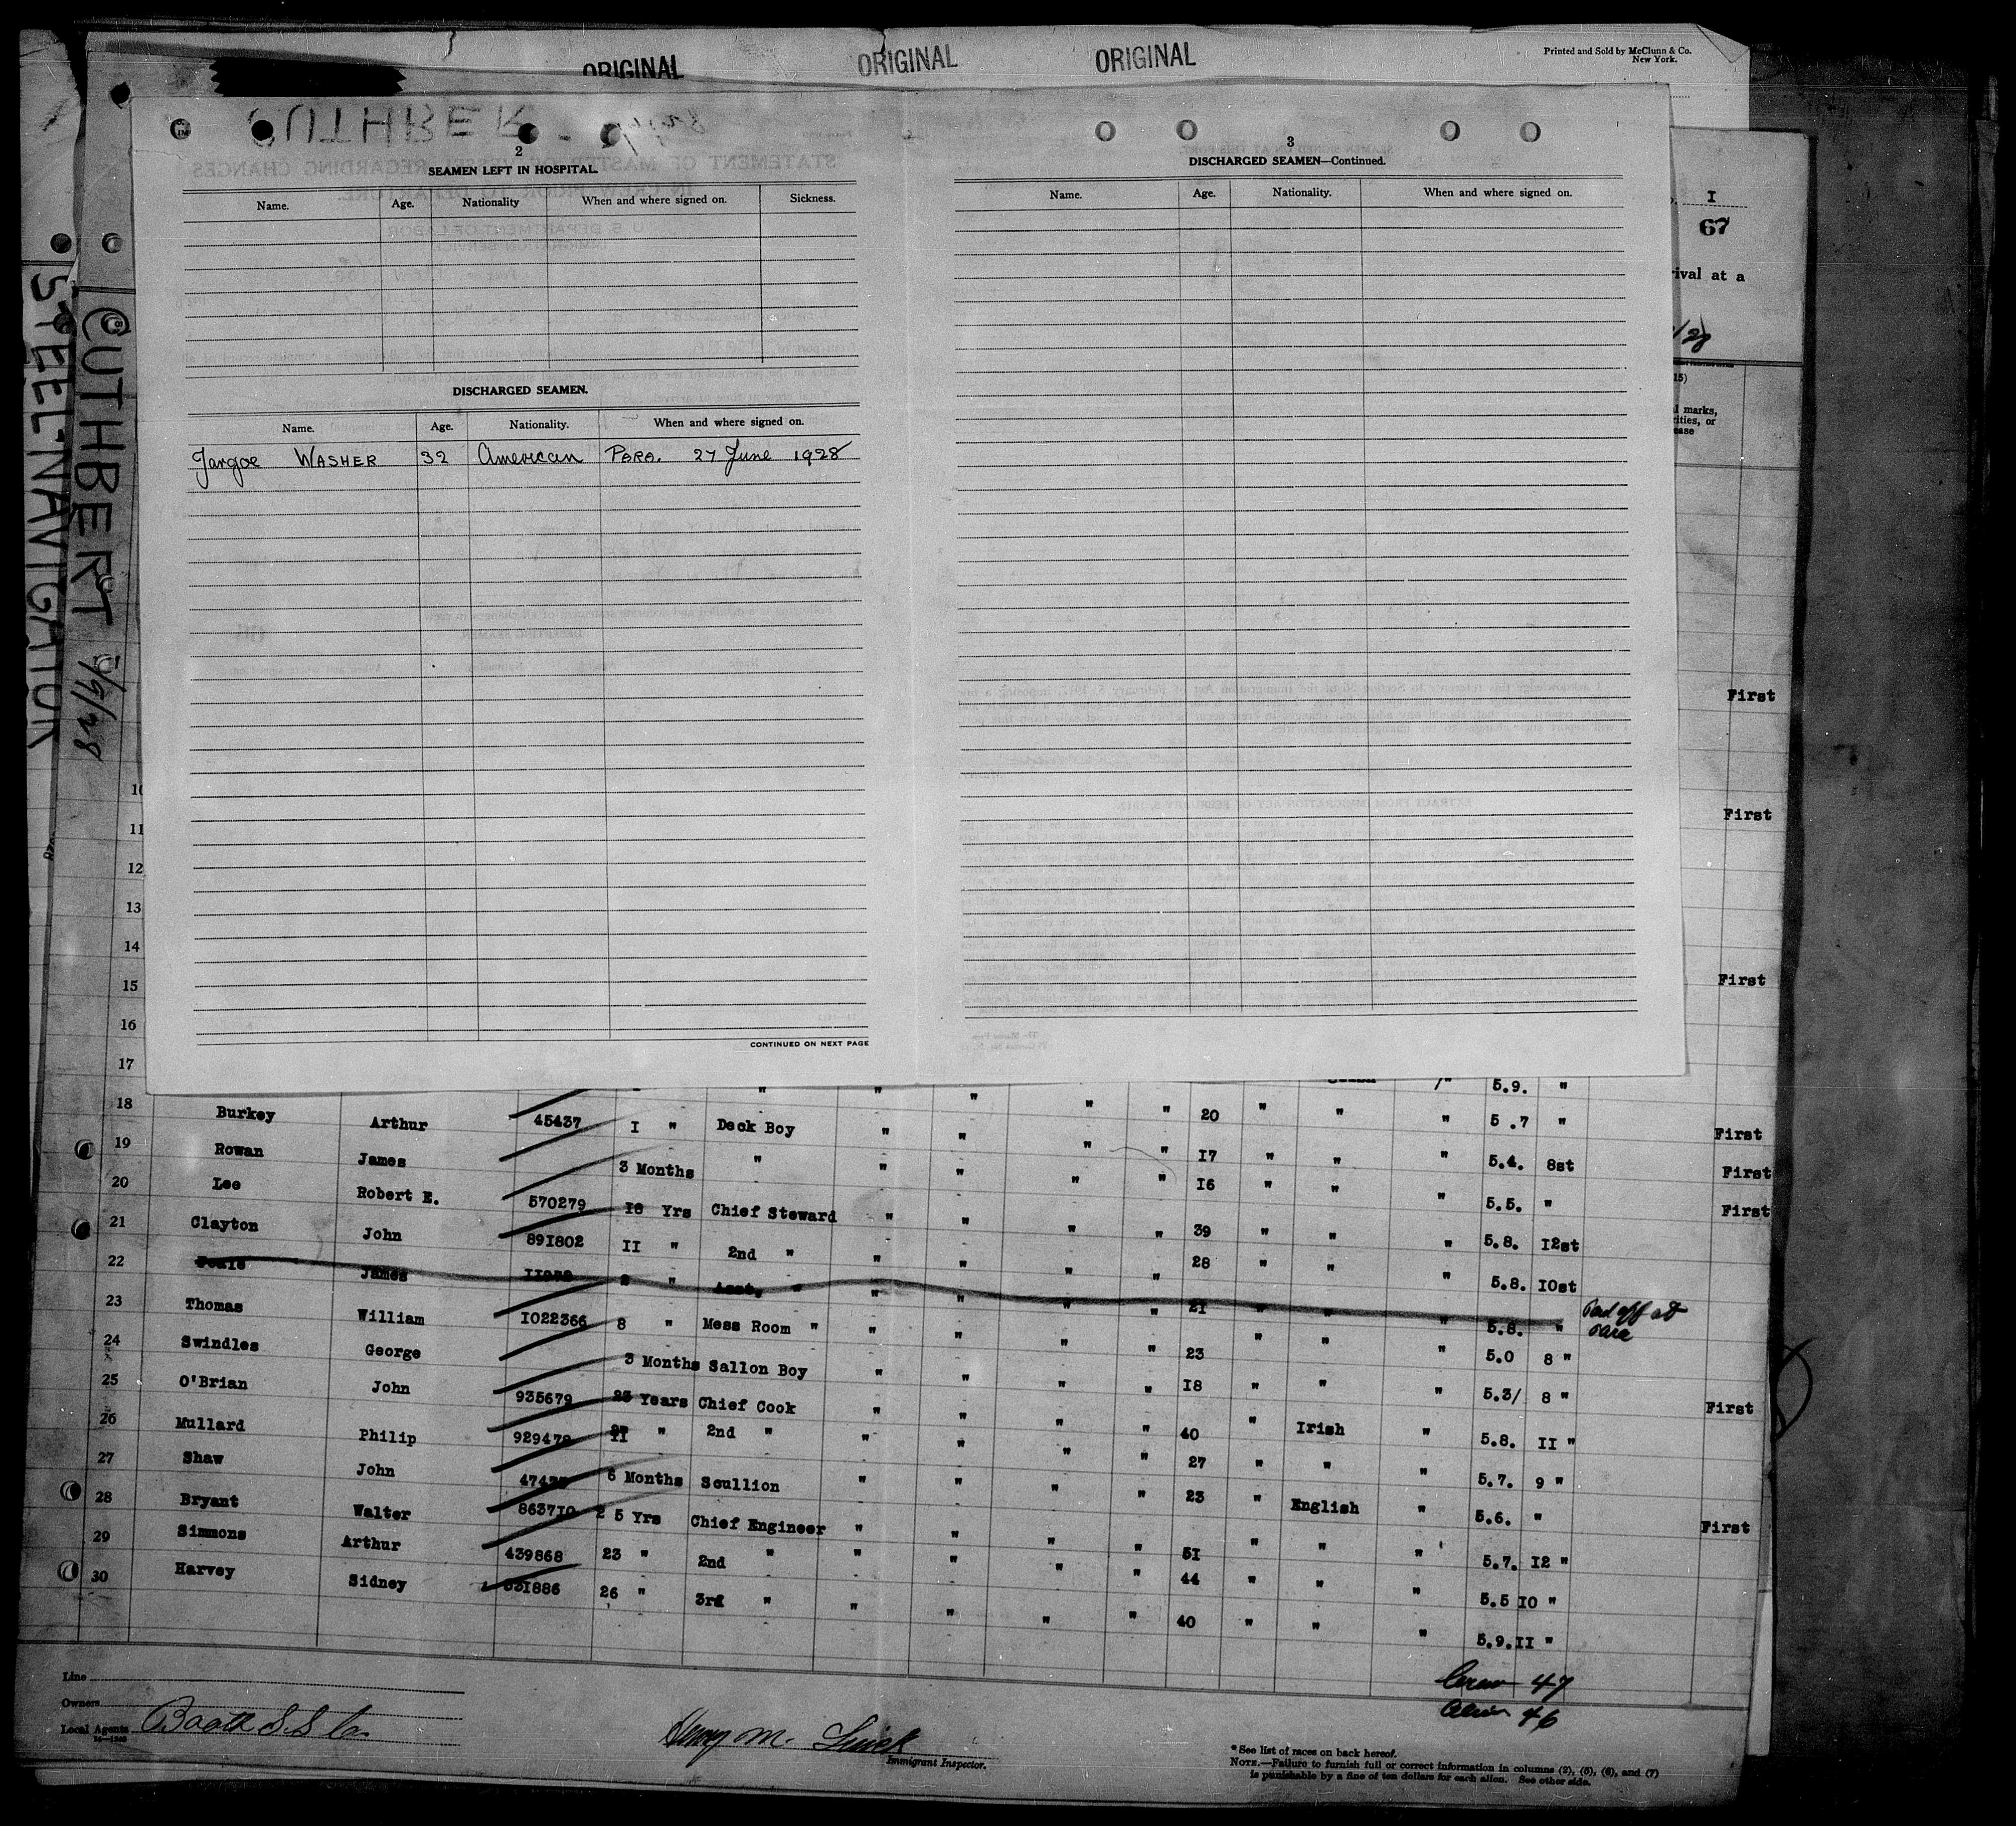 Printed and Sold by McClunn & Co.
New York.
ORIGINAL ORIGINAL ORIGINAL
CUTHBER
STEEL NAVIGATION
CUTHBERT 7/9/28
I
67
rival at a
/28
15)
l marks,
rities, or
ease
2
SEAMEN LEFT IN HOSPITAL.
Name. Age. Nationality When and where signed on. Sickness.
DISCHARGED SEAMEN.
Name. Age. Nationality. When and where signed on.
Jargoe WASHER 32 American PARA. 27 June 1928
CONTINUED ON NEXT PAGE
3
DISCHARGED SEAMEN—Continued.
Name. Age. Nationality. When and where signed on.
First
10
11 First
12
13
14
15 First
16
17 " " " " " 5.9. "
18 Burkey Arthur 45437 I " Deck Boy " " " " 20 " " " 5.7 " First
19 Rowan James 3 Months " " " " " 17 " " " 5.4. 8st First
20 Lee Robert E. 570279 18 Yrs Chief Steward " " " " 16 " " " 5.5. " First
21 Clayton John 891802 II " 2nd " " " " " 39 " " " 5.8. 12st
22 James " Asst, " " " " " 28 " " " 5.8. 10st
23 Thomas William 1022366 8 " Mess Room " " " " " 21 " " " 5.8. " Paid off at Para
24 Swindles George 3 Months Sallon Boy " " " " 23 " " " 5.0 8 "
25 O'Brian John 935679 23 Years Chief Cook " " " " 18 " " " 5.3/ 8 " First
26 Mullard Philip 929479 II " 2nd " " " " " 40 " Irish " 5.8. II "
27 Shaw John 6 Months Scullion " " " " 27 " " " 5.7. 9 "
28 Bryant Walter 863710 2 5 Yrs Chief Engineer " " " " 23 " English " 5.6. " First
29 Simmons Arthur 439868 23 " 2nd " " " " " 51 " " " 5.7. 12 "
30 Harvey Sidney 531886 26 " 3rd " " " " " 44 " " " 5.5 10 "
40 " " " 5.9. II "
Crew 47
Alien 46
Line
Owners
Local Agents Booth S.S. Co.
Henry M.
Immigrant Inspector.
* See list of races on back hereof.
NOTE.—Failure to furnish full or correct information in columns (2), (5), (6), and (7)
is punishable by a fine of ten dollars for each alien. See other side.